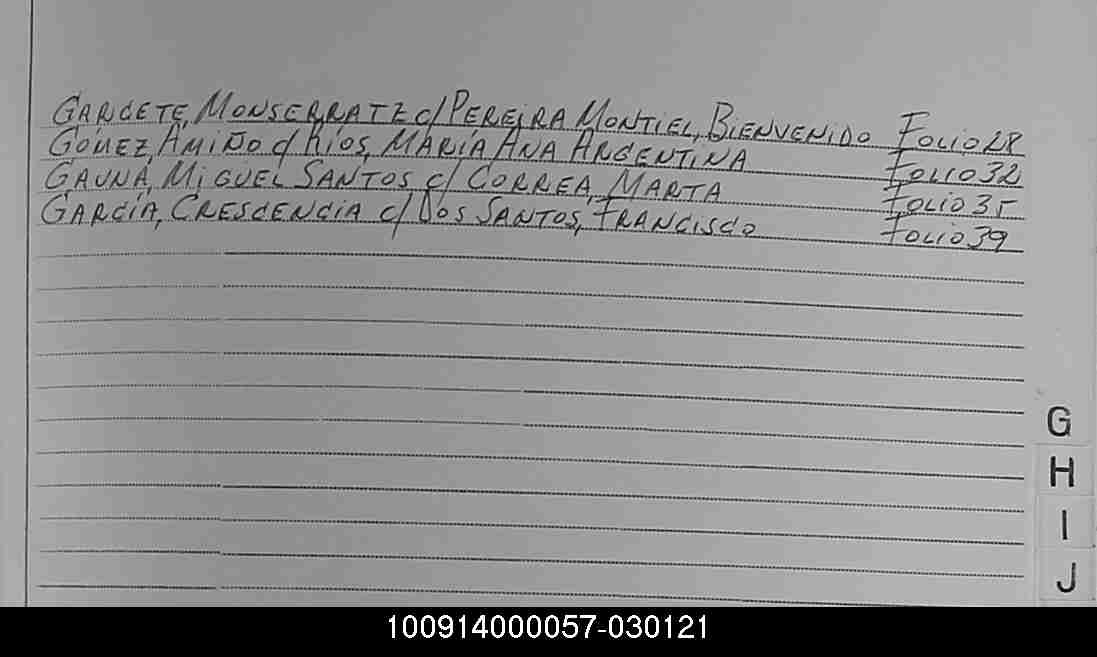 GARCETE, MONSERRATE c/ PEREIRA MONTIEL, BIENVENIDO FOLIO 28
GÓMEZ, AMIÑO c/ RÍOS, MARÍA ANA ARGENTINA FOLIO 32
GAUNA, MIGUEL SANTOS c/ CORREA, MARTA FOLIO 35
GARCÍA, CRESCENCIA c/ DOS SANTOS, FRANCISCO FOLIO 39
G
H
I
J
100914000057-030121